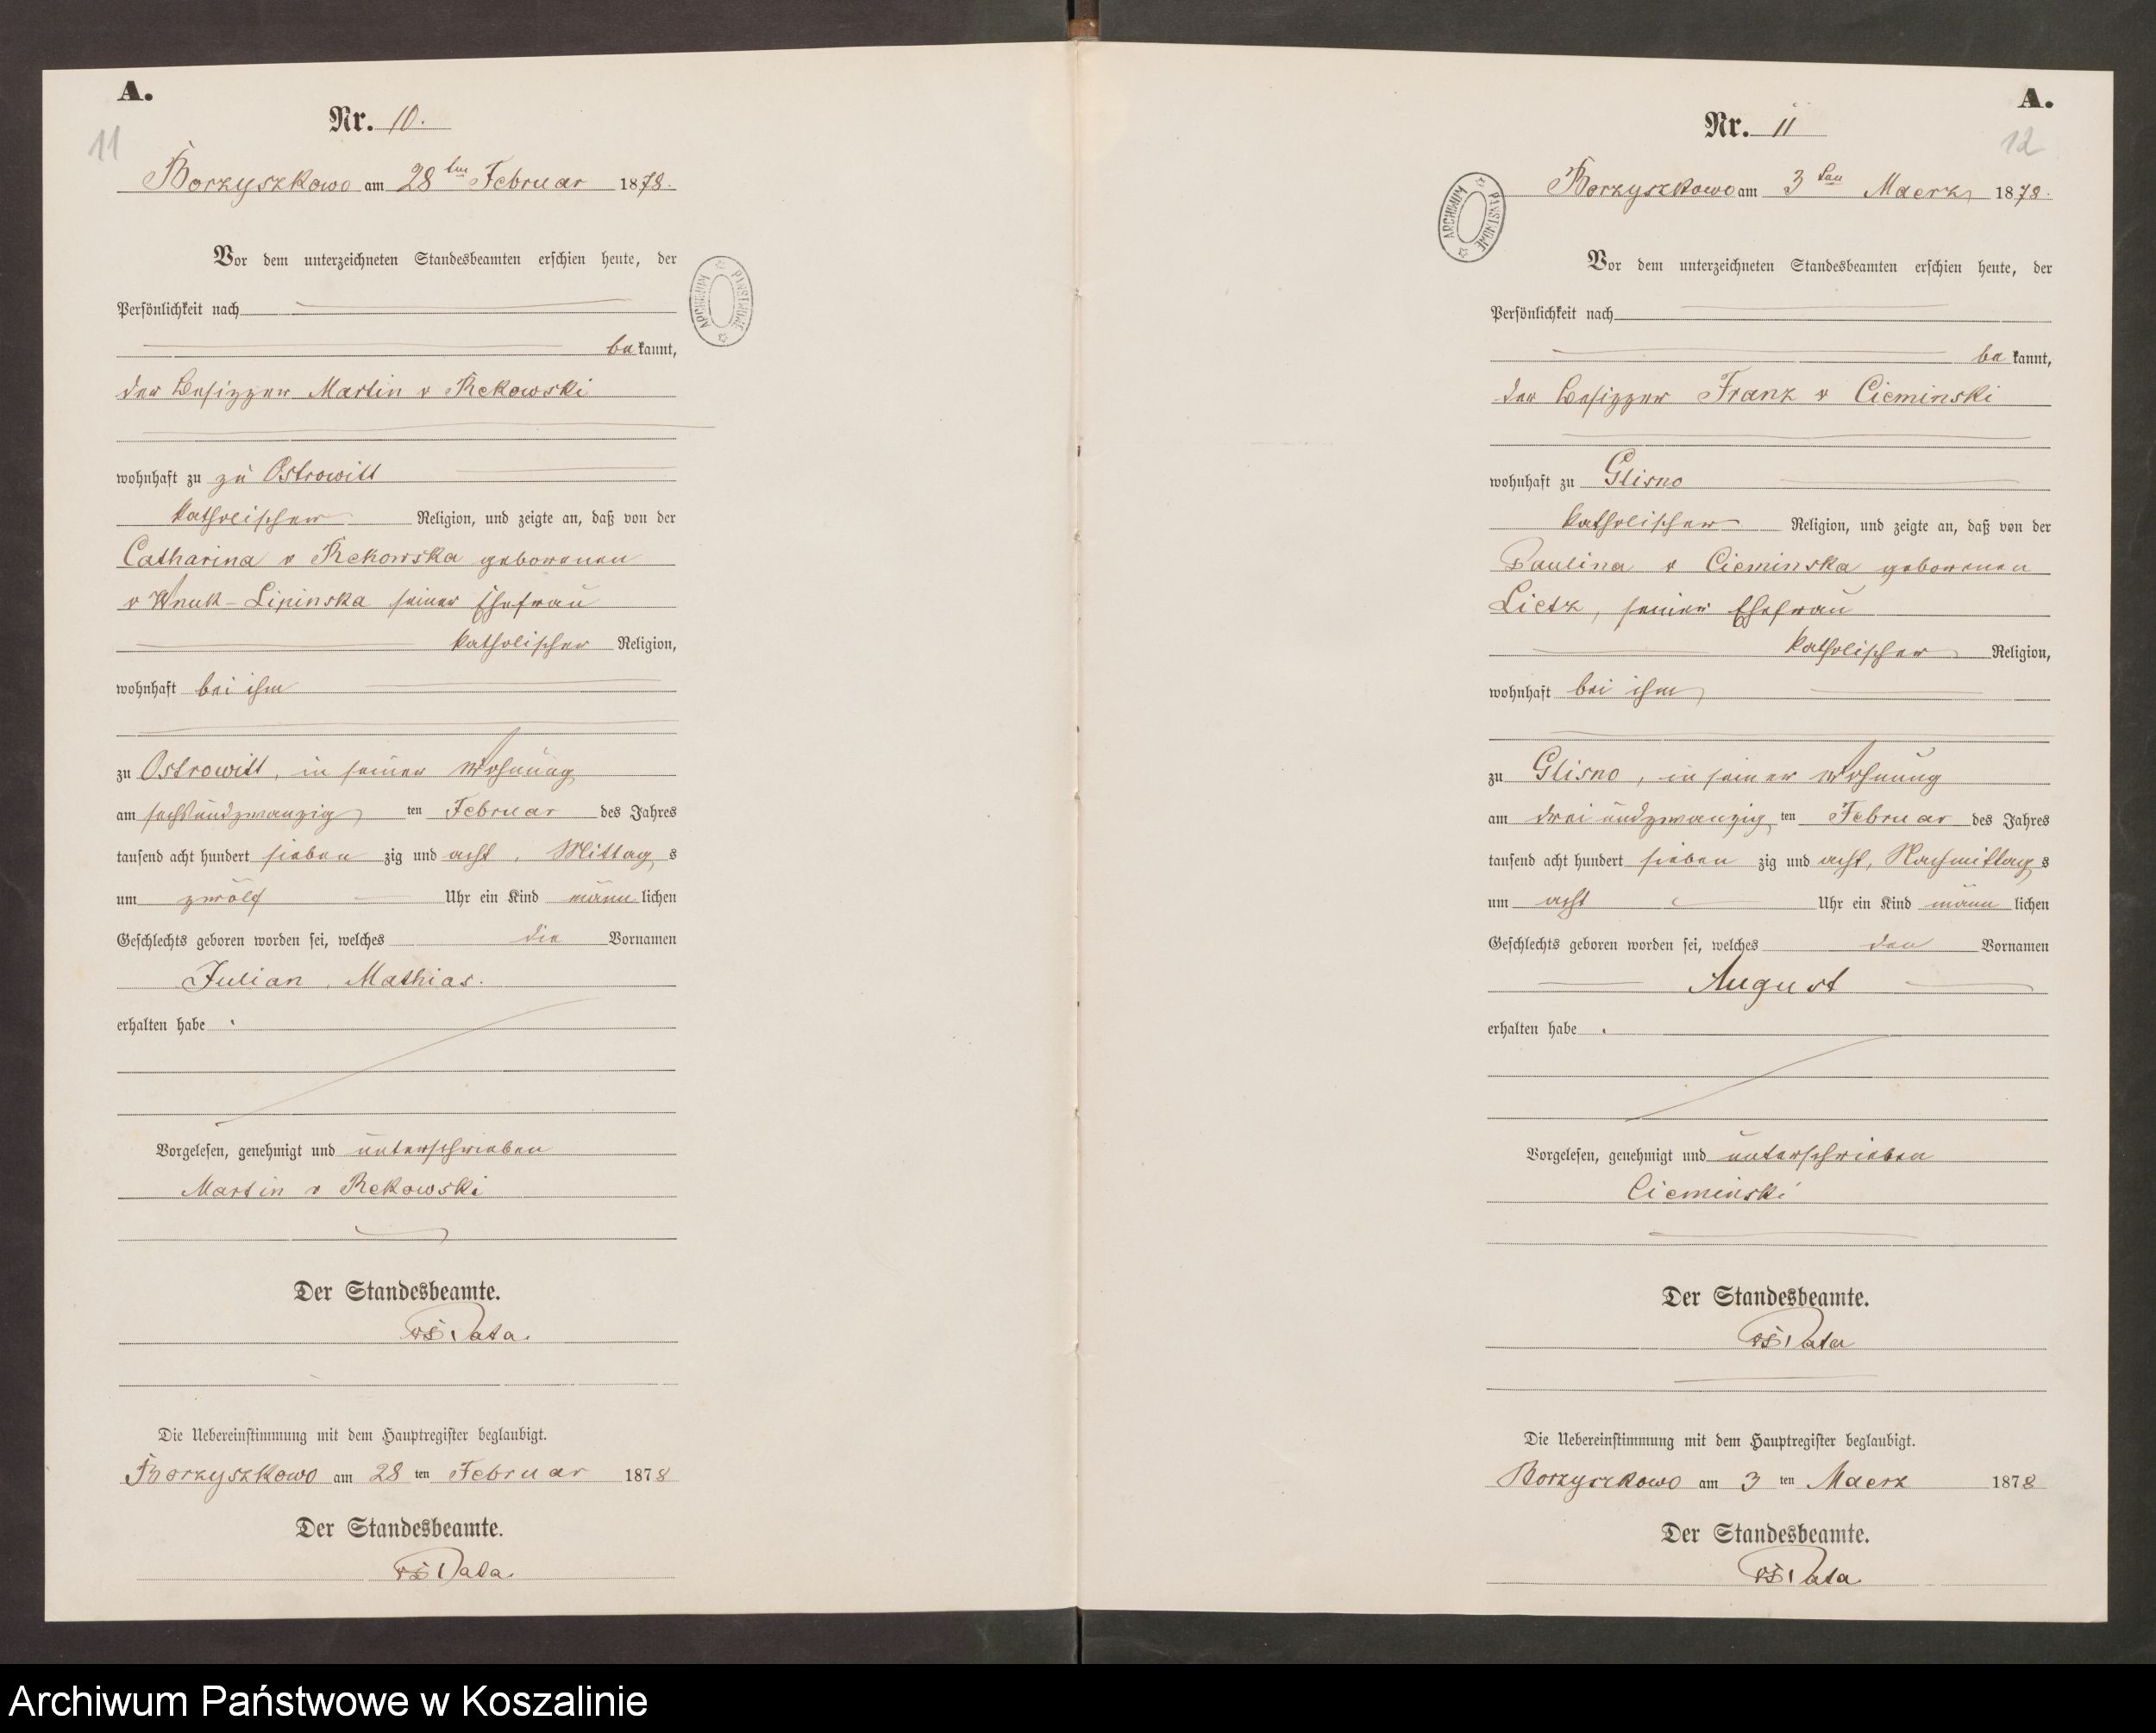 A.
11
Nr. 10.
Borzyszkowo am 28ten Februar 1878.
Vor dem unterzeichneten Standesbeamten erschien heute, der
Persönlichkeit nach
bekannt,
der Besitzer Martin v Rekowski
wohnhaft zu zu Ostrowitt
katholischer Religion, und zeigte an, daß von der
Catharina v Rekowska geborenen
v Wnuk-Lipinska seiner Ehefrau
katholischer Religion,
wohnhaft bei ihm
zu Ostrowitt, in seiner Wohnung
am sechsundzwanzig ten Februar des Jahres
tausend acht hundert sieben zig und acht, Mittag s
um zwölf Uhr ein Kind männ lichen
Geschlechts geboren worden sei, welches die Vornamen
Julian, Mathias.
erhalten habe.
Vorgelesen, genehmigt und unterschrieben
Martin v Rekowski
Der Standesbeamte.
Pata.
Die Uebereinstimmung mit dem Hauptregister beglaubigt.
Borzyszkowo am 28 ten Februar 1878
Der Standesbeamte.
Pata.
ARCHIWUM PAŃSTWOWE
A.
12
Nr. 11
Borzyszkowo am 3ten Maerz 1878.
Vor dem unterzeichneten Standesbeamten erschien heute, der
Persönlichkeit nach
bekannt,
der Besitzer Franz v Cieminski
wohnhaft zu Glisno
katholischer Religion, und zeigte an, daß von der
Paulina v Cieminska geborenen
Lietz, seiner Ehefrau
katholischer Religion,
wohnhaft bei ihm
zu Glisno, in seiner Wohnung
am drei undzwanzig ten Februar des Jahres
tausend acht hundert sieben zig und acht, Nachmittag s
um acht Uhr ein Kind männ lichen
Geschlechts geboren worden sei, welches den Vornamen
August
erhalten habe.
Vorgelesen, genehmigt und unterschrieben
Cieminski
Der Standesbeamte.
Pata
Die Uebereinstimmung mit dem Hauptregister beglaubigt.
Borzyszkowo am 3 ten Maerz 1878
Der Standesbeamte.
Pata
ARCHIWUM PAŃSTWOWE
Archiwum Państwowe w Koszalinie